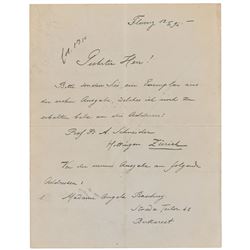 Geehrter Herr!
Bitte senden Sie, ein Exemplar aus
der ersten Ausgabe, welches ich noch zu
erhalten habe an die Adresse:
Prof. Dr. A. Schneider
Hottingen Zürich
Von der neuen Ausgabe an folgende
Addressen:
1 Madame Angela
Strada
Bukarest